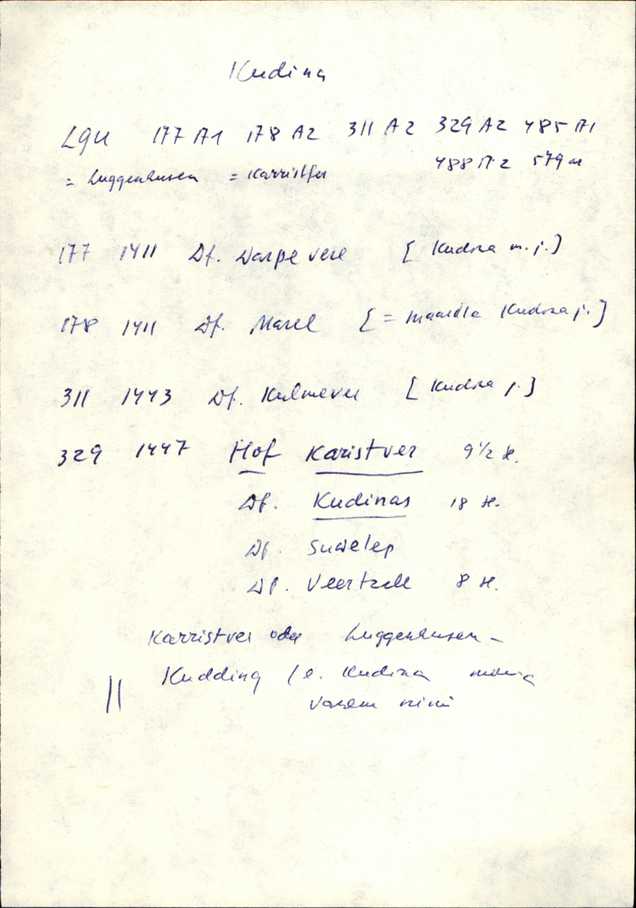 Kudina
LGU 177 A1 178 A2 311 A2 329 A2 485 A1
488 A2 579
= Luggenhusen = Karristfer
177 1411 Df. Warpevere [Kudina m. j.]
178 1411 Df. Marel [= Maardla Kudina j.]
311 1443 Df. Kulmever [Kudina j.]
329 1447 Hof Karistver 9 1/2 H.
Df. Kudinas 18 H.
Df. Suwelep
Df. Veertzele 8 H.
Karristver oder Luggenhusen -
|| Kudding (e. Kudina mõisa
vanem nimi